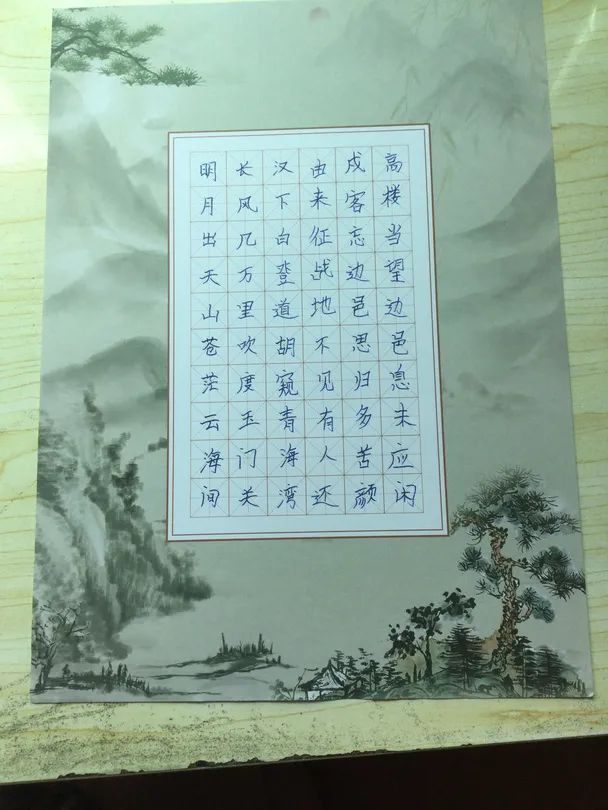 明月出天山苍茫云海间
长风几万里吹度玉门关
汉下白登道胡窥青海湾
由来征战地不见有人还
戍客忘边邑思归多苦颜
高楼当望边邑息未应闲